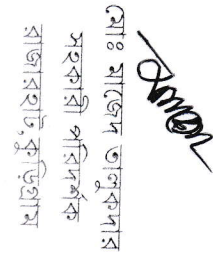 মোঃ মাজেদ তালুকদার
সহকারী পরিদর্শক
রাজারহাট,কুড়িগ্রাম